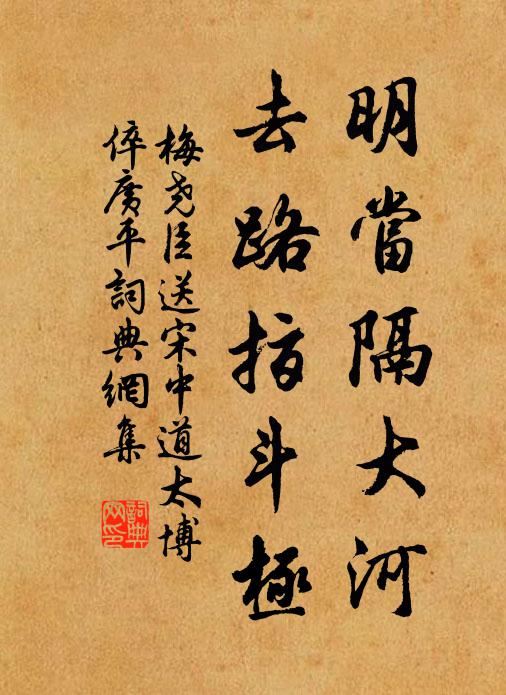 明當隔大河
去路指斗極
梅堯臣送宋中道太博
倅廣平詞典網集
詞典
网印